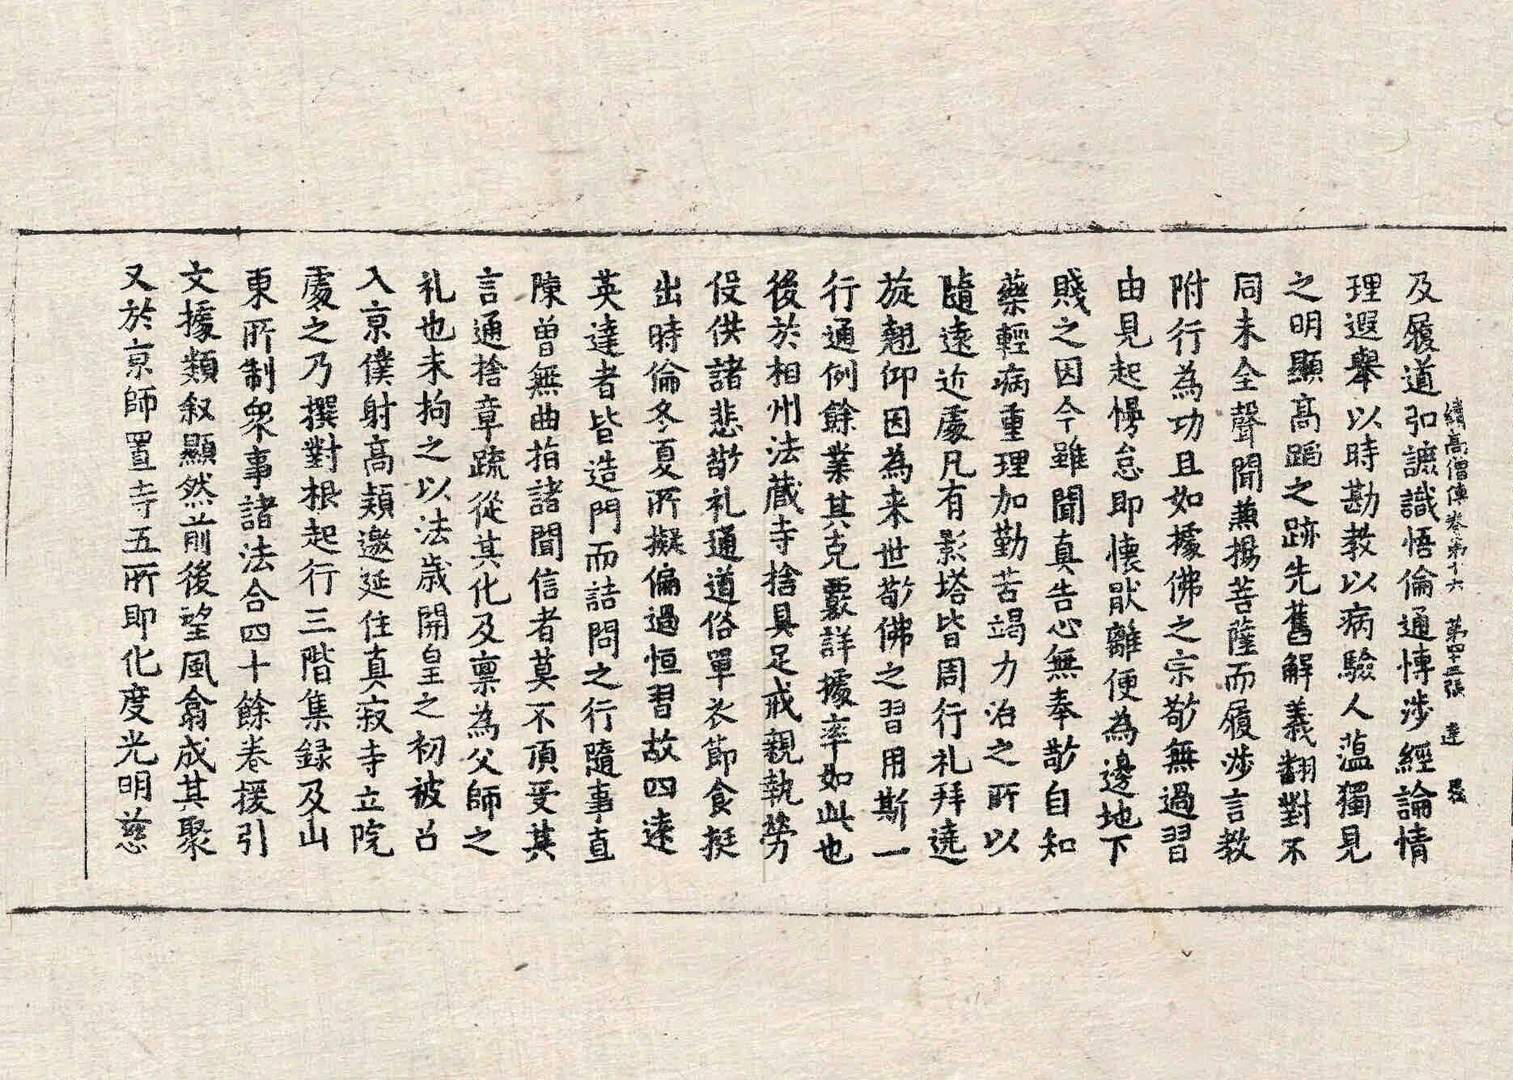 續高僧傳卷第十六 第四十三張 達
及履道弘護識悟倫通博涉經論情
理遐舉以時勘教以病驗人蘊獨見
之明顯高蹈之跡先舊解義翻對不
同未全聲聞兼揚菩薩而履涉言教
附行為功且如據佛之宗敬無過習
由見起慢怠即懷猒離便為邊地下
賤之因今雖聞真告心無奉敬自知
藥輕病重理加勤苦竭力治之所以
隨遠近處凡有影塔皆周行礼拜遶
旋翹仰因為来世敬佛之習用斯一
行通例餘業其克覈詳據率如此也
後於相州法藏寺捨具足戒親執勞
役供諸悲敬礼通道俗單衣節食挺
出時倫冬夏所擬偏過恒習故四遠
英達者皆造門而詰問之行隨事直
陳曾無曲指諸聞信者莫不頂受其
言通捨章疏從其化及禀為父師之
礼也未拘之以法歲開皇之初被召
入京僕射高熲邀延住真寂寺立院
處之乃撰對根起行三階集録及山
東所制衆事諸法合四十餘卷援引
文據類叙顯然前後望風翕成其聚
又於京師置寺五所即化度光明慈